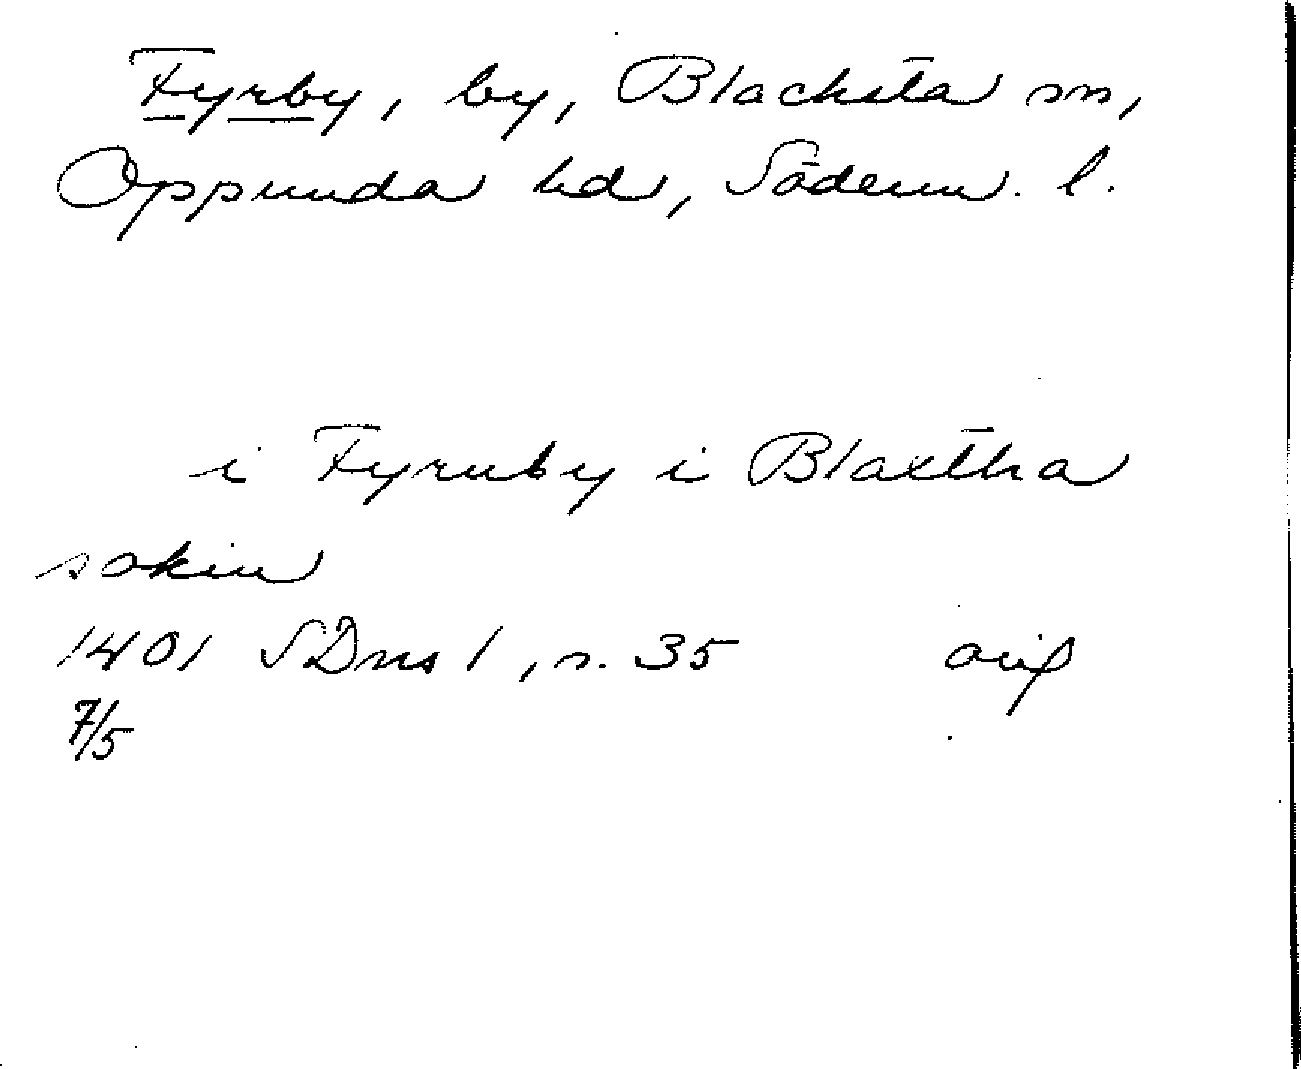 Fyrby, by, Blacksta sn,
Oppunda hd, Söderm. l.
i Fyruby i Blaxtha
sokin
1401 SDns 1, s. 35
7/5